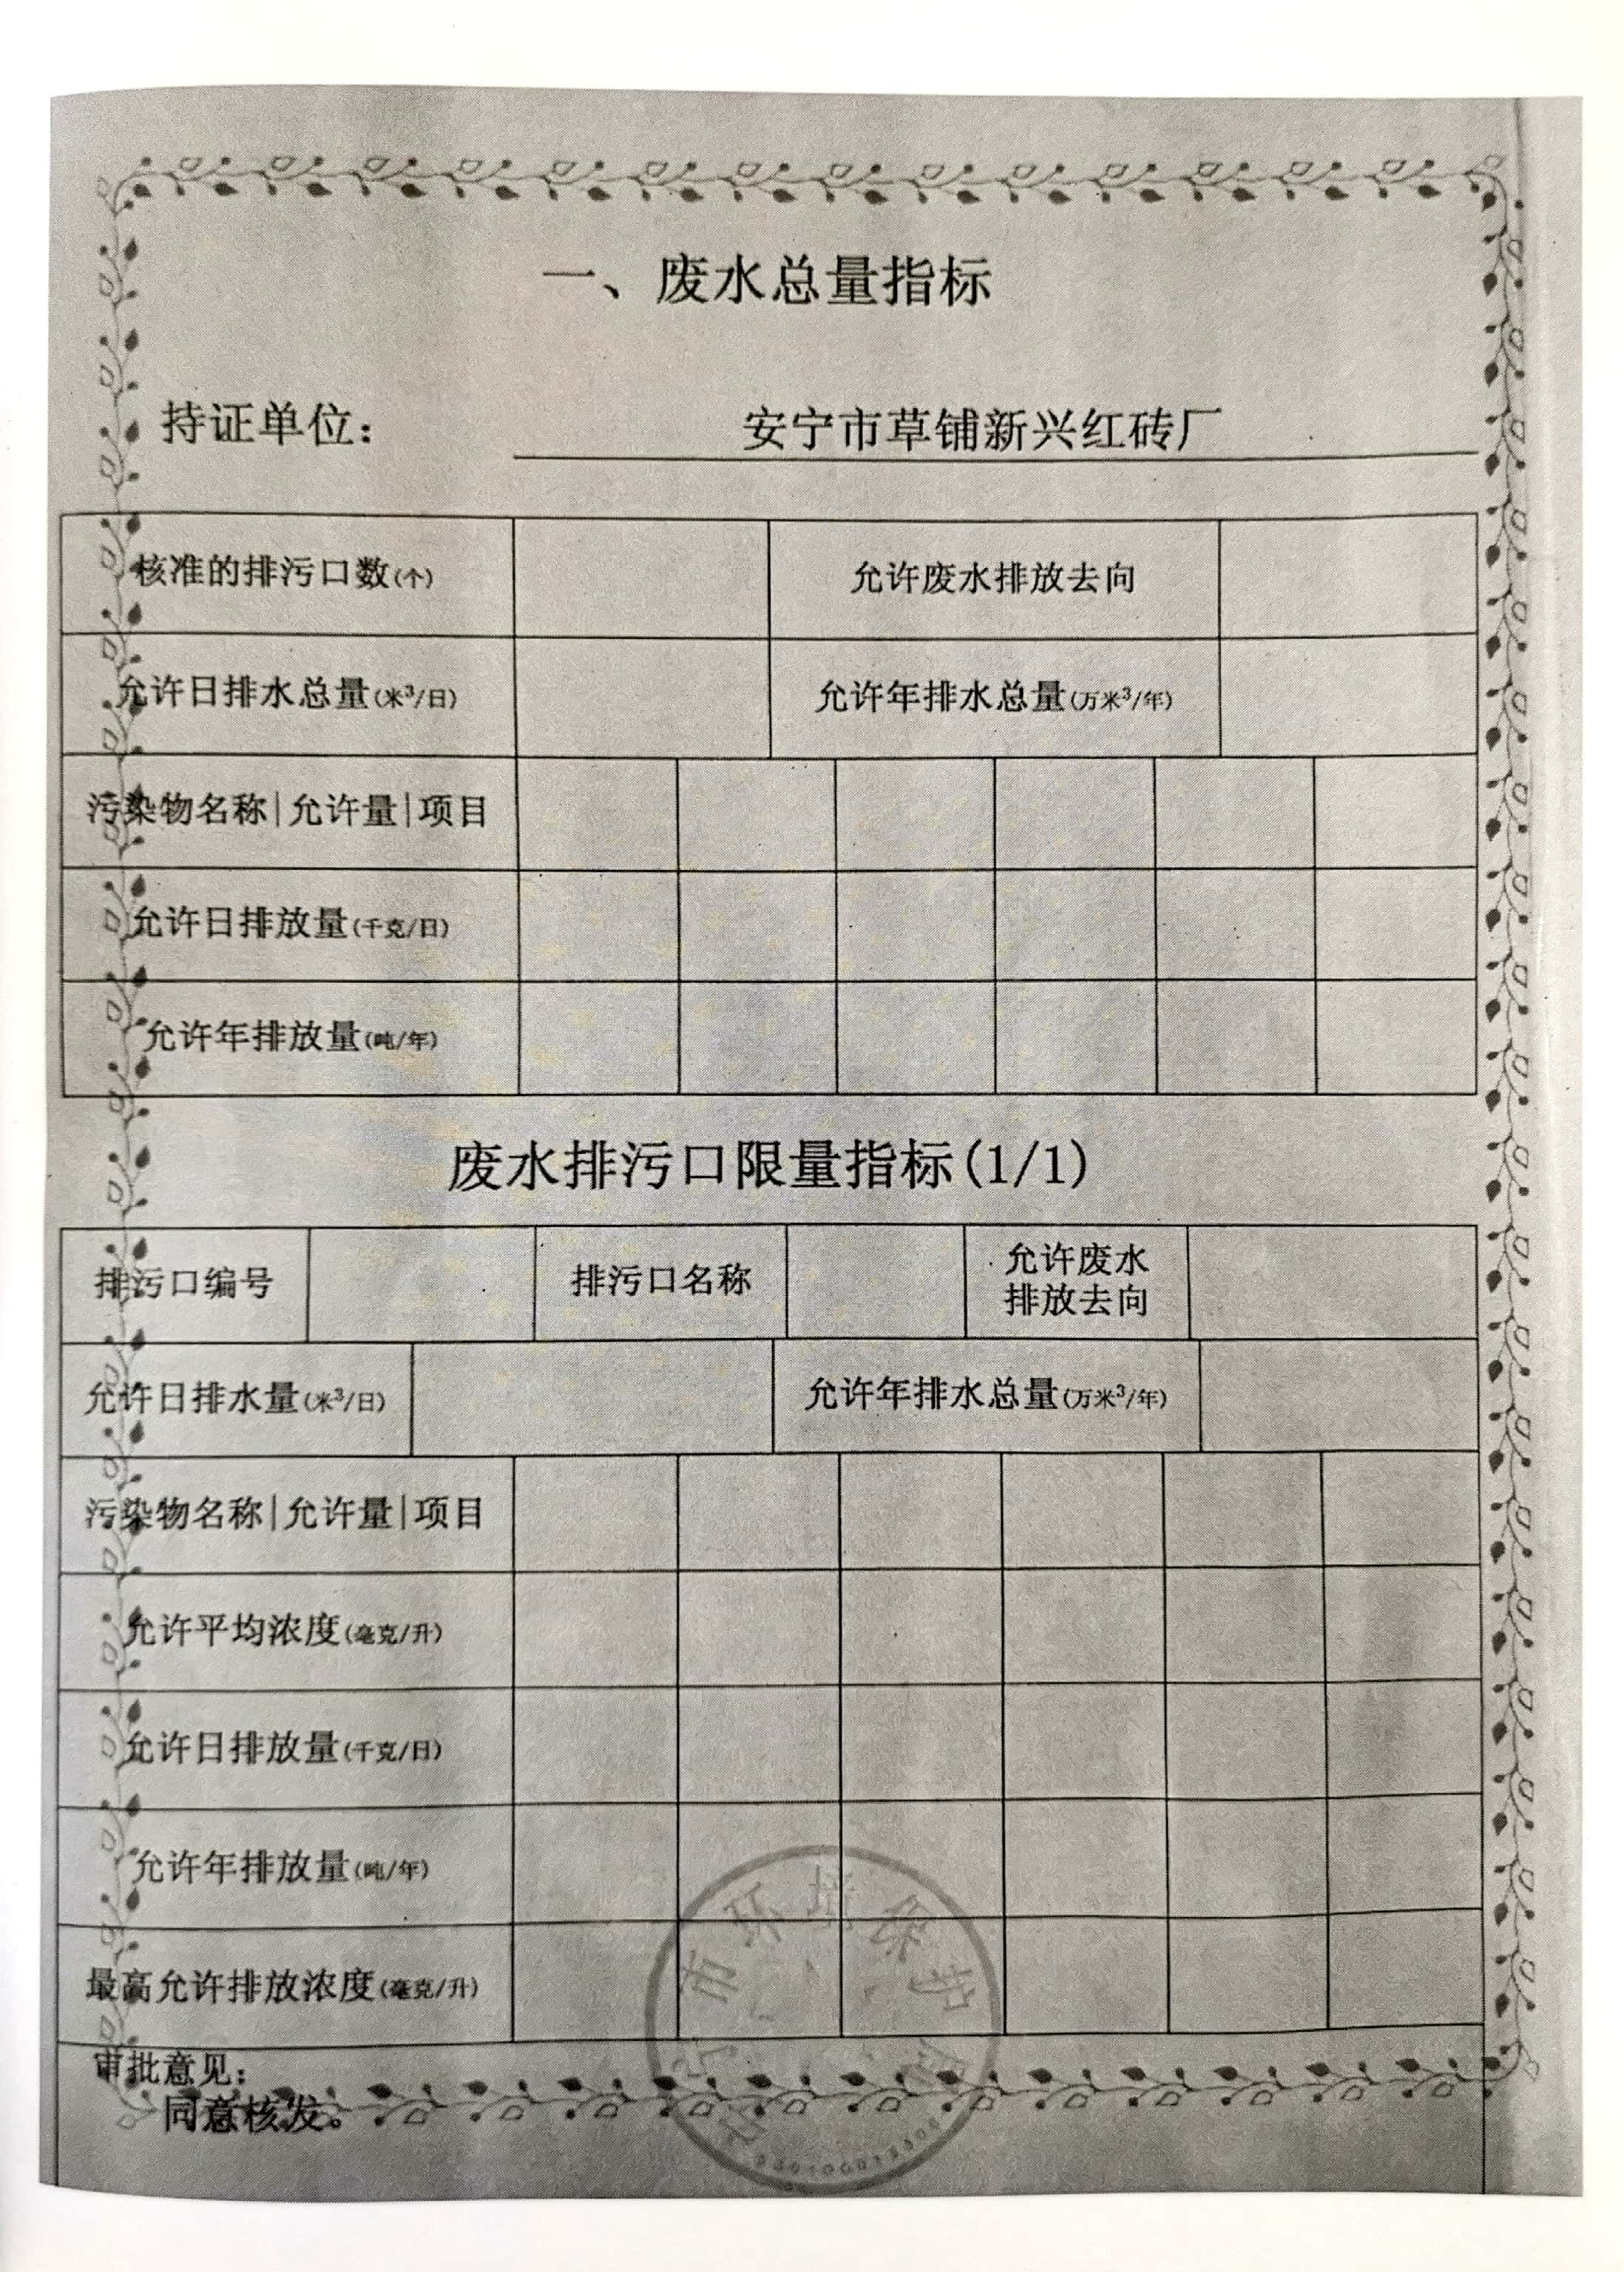 一、废水总量指标
持证单位： 安宁市草铺新兴红砖厂
核准的排污口数(个) 允许废水排放去向
允许日排水总量(米³/日) 允许年排水总量(万米³/年)
污染物名称|允许量|项目
允许日排放量(千克/日)
允许年排放量(吨/年)
废水排污口限量指标(1/1)
排污口编号 排污口名称 允许废水
排放去向
允许日排水量(米³/日) 允许年排水总量(万米³/年)
污染物名称|允许量|项目
允许平均浓度(毫克/升)
允许日排放量(千克/日)
允许年排放量(吨/年)
最高允许排放浓度(毫克/升)
审批意见：
同意核发。
安宁市环境保护局